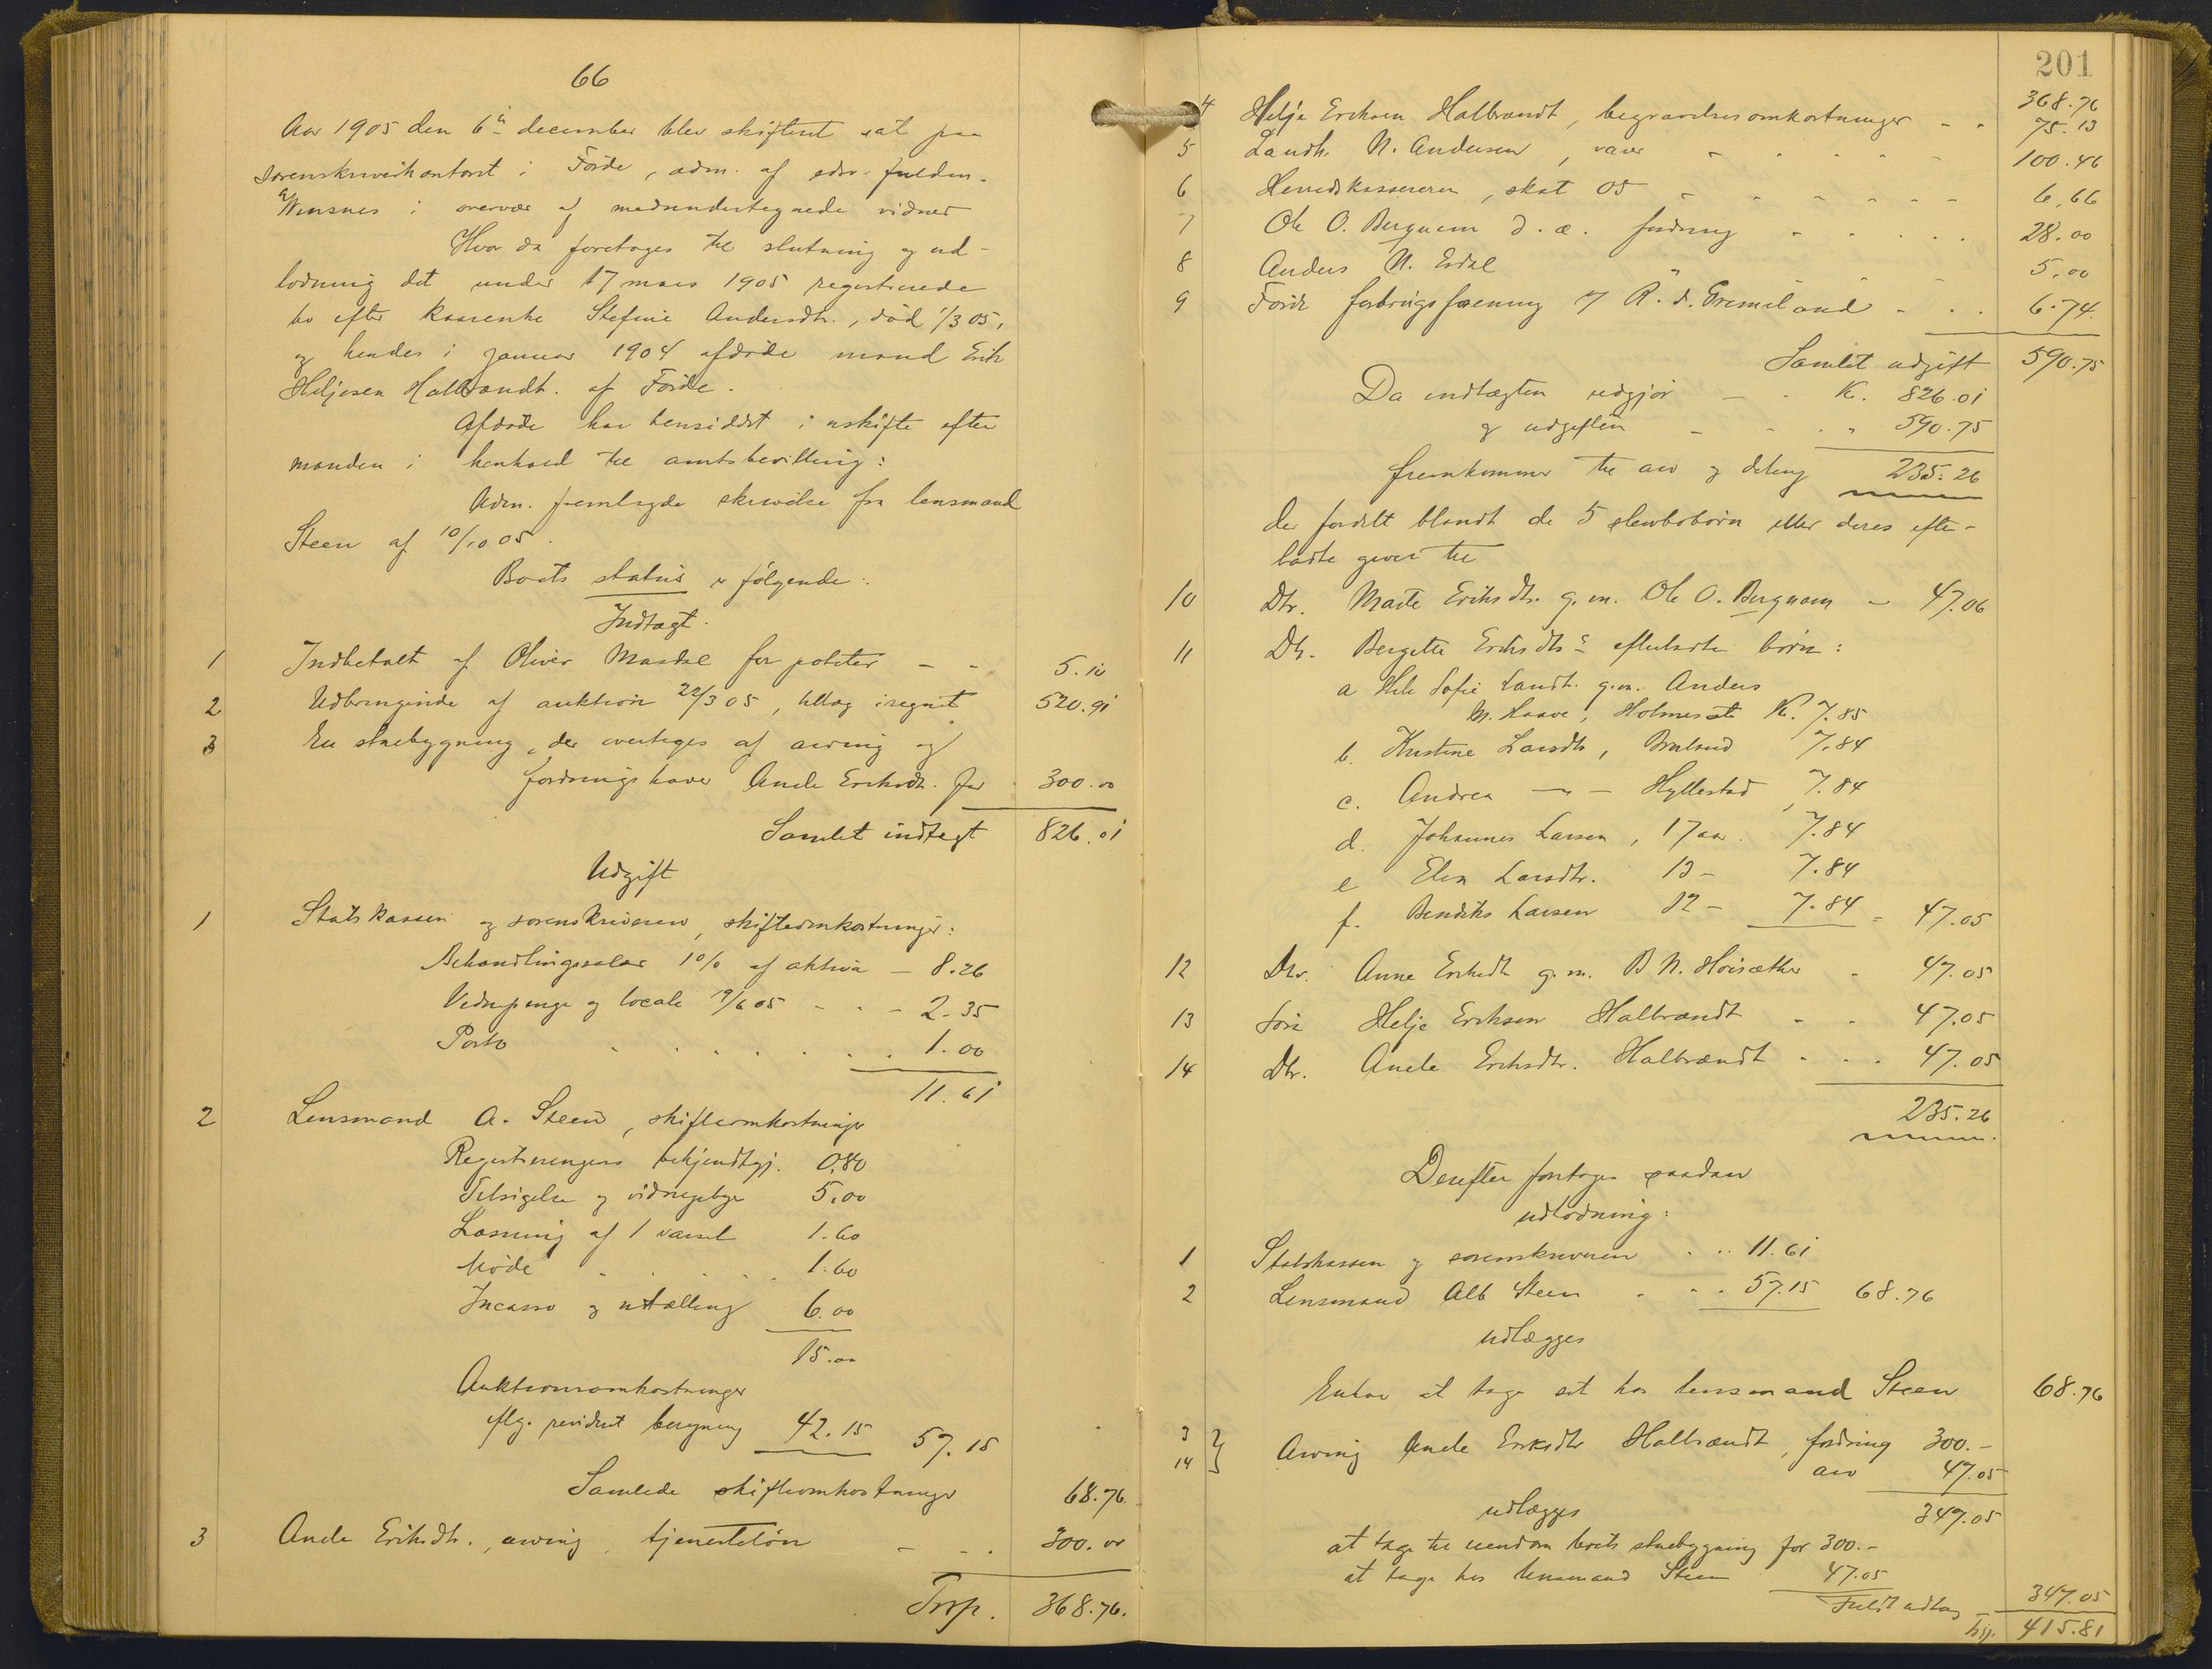 66
Aar 1905 den 6te december blev skifteret sat paa
sorenskriverkontoret i Førde, adm. af edsv. fuldm.
Wensnes i overvær af medundertegnede vidner
Hvor da foretages til slutning og ud-
lodning det under 17 mars 1905 registrerede
bo efter kaarenke Stefine Andersdtr., død 1/3 05,
og hendes i januar 1904 afdøde mand Erik
Heljesen Halbrændt af Førde.
Afdøde har hensiddet i uskifte efter
manden i henhold til amtsbevilling:
Adm. fremlagde skrivelse fra lensmand
Steen af 10/10 05.
Boets status er følgende:
Indtægt.
1 Indbetalt af Oliver Mardal for poteter - - 5.10
2 Udbringende af auktion 22/3 05, tillæg iregnet 520.91
3 En stuebygning, der overtages af arving og
fordringshaver Ande Eriksdtr. for 300.00
Samlet indtægt 826.01
Udgift
1 Statskassen og sorenskriveren, skifteomkostninger:
Behandlingssalær 1% af aktiva - 8.26
Vidnepenge og locale 19/6 05 - - - 2.35
Porto . . . . . . . 1.00
11.61
2 Lensmand A. Steen, skifteomkostninger
Registreringens bekjendtgj. 0.80
Tilsigelse og vidnegebyr 5.00
Læsning af 1 varsel 1.60
Møde . . . . 1.60
Incasso og utælling 6.00
15.00
Auktionsomkostninger
iflg. revideret beregning 42.15 57.15
Samlede skifteomkostninger 68.76.
3 Ande Eriksdtr., arving, tjenesteløn - - . 300.00
Trsp. 368.76.
201
368.76
4 Helje Eriksen Halbrændt, begravelsesomkostninger - - 75.13
5 Landh. N. Andersen, varer - - - - - 100.46
6 Herredskassereren, skat 05 - - - - - - 6,66
7 Ole O. Bergum d. æ. fordring - . . . . 28.00
8 Anders N. Erdal " - - 5,00
9 Førde forbrugsforening v/ R. d. - . . 6.74.
Samlet udgift 590.75
Da indtægten udgjør - - K. 826.01
og udgiften - - . . 590.75
fremkommer til arv og deling 235.26
der fordelt blandt de 5 sterbobørn eller deres efter-
ladte giver til
10 Dtr. Marte Eriksdtr. g.m. Ole O. Bergum - 47.06
11 Dtr. Bergitte Eriksdtrs efterladte børn:
a Sofie Larsdt. g.m. Anders
M. Haave, Holmesæt K. 7.85
b. Kristine Larsdtr, 7.84
c. Andrea —"— Hyllestad, 7.84
d. Johannes Larsen, 17 aar. 7.84
e Elen Larsdtr. 13 - 7.84
f. Bendiks Larsen 12 - 7.84 = 47.05
12 Dtr. Anne Eriksdt g.m. B N. Høisæther - 47.05
13 Søn Helje Eriksen Halbrændt - - 47.05
14 Dtr. Ande Eriksdtr. Halbrændt . . . 47.05
235.26
Derefter foretages saadan
udlodning:
1 Statskassen og sorenskriveren . .. 11.61
2 Lensmand Alb Steen . . . 57.15 68.76
udlægges
Enhver at tage sit hos lensmand Steen 68.76
3
14 } Arving Ande Eriksdtr Halbrændt, fordring 300.-
arv 47.05
udlægges 347.05
at tage til eiendom boets stuebygning for 300.-
at tage hos lensmand Steen 47.05
Fuldt udlæg 347.05
Trsp. 415.81